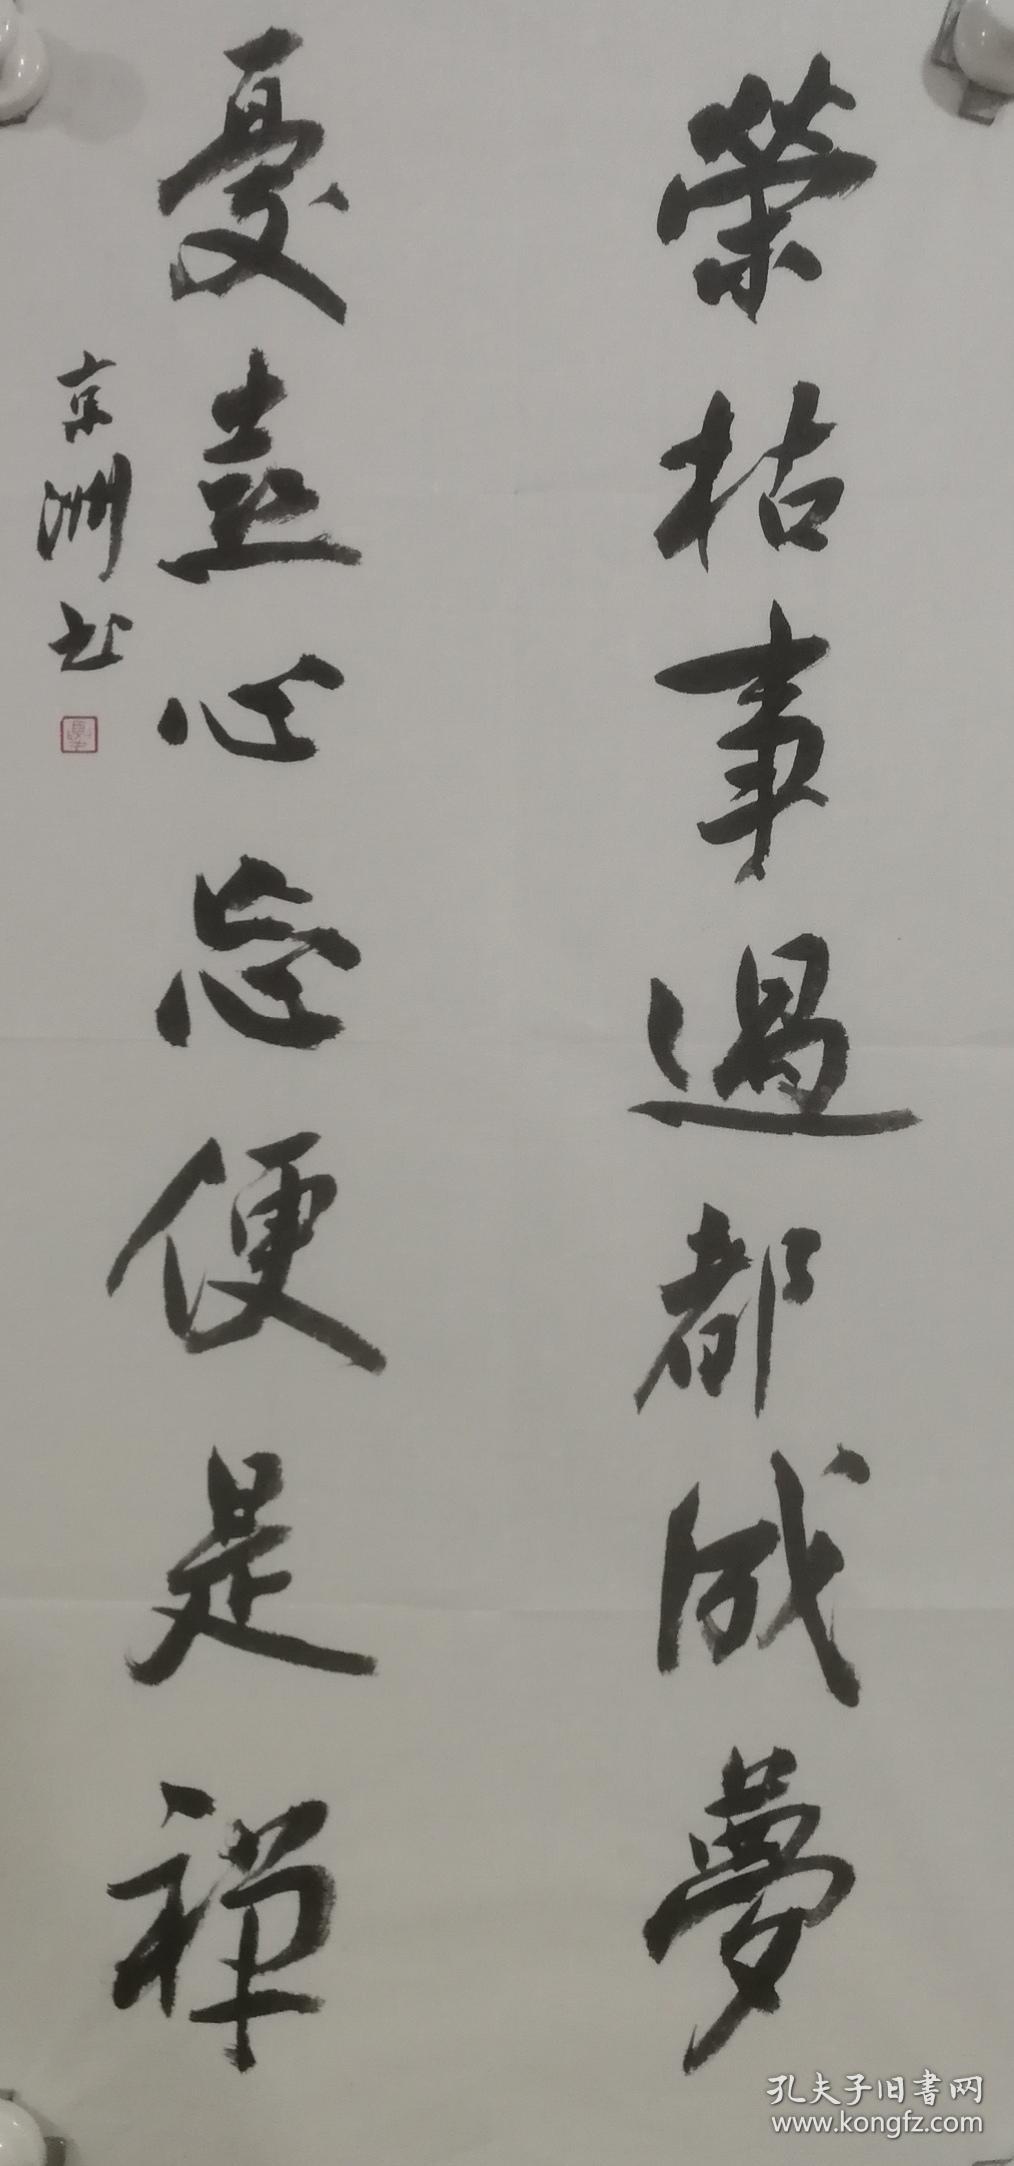 荣枯事過都成夢
憂喜心忘便是禅
京洲书
孔夫子旧書网
www.kongfz.com